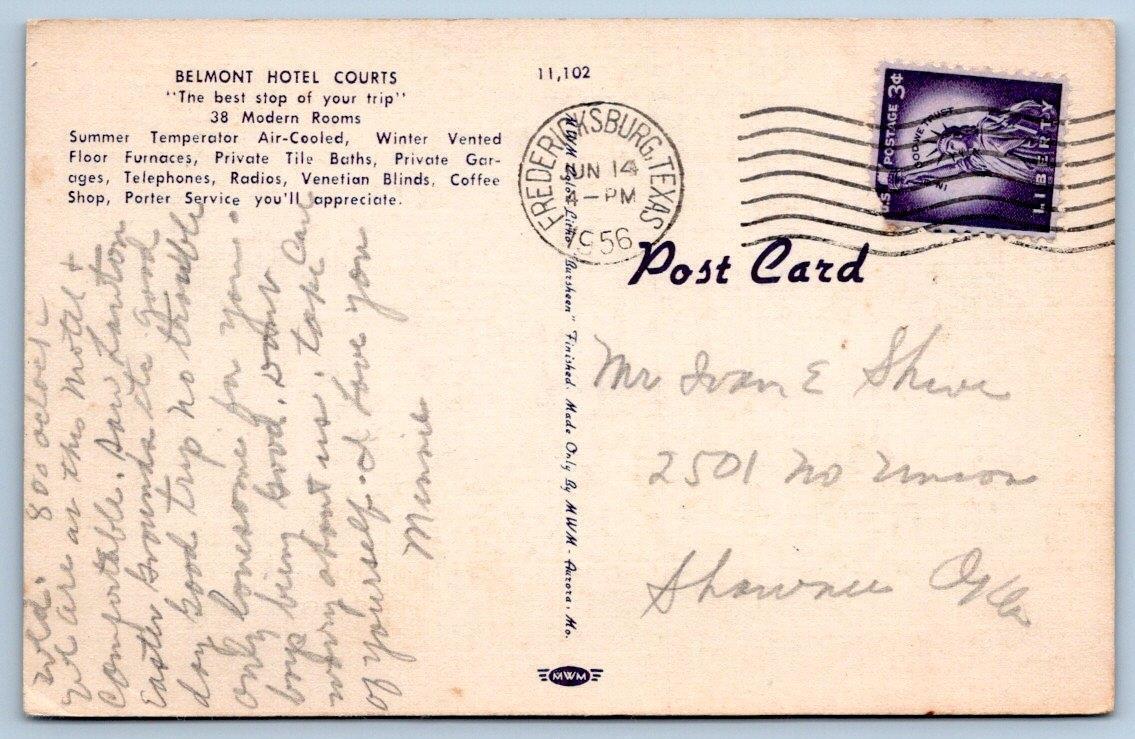 BELMONT HOTEL COURTS
"The best stop of your trip"
38 Modern Rooms
Summer Temperator Air-Cooled, Winter Vented
Floor Furnaces, Private Tile Baths, Private Gar-
ages, Telephones, Radios, Venetian Blinds, Coffee
Shop, Porter Service you'll appreciate.
wed. 800 oclock
We are at this Motal +
Comfortable. Saw Lawton
Easter Grounds its Good
day good trip no trouble
only lonesome for you.
boys being good. Dont
worry about us, take care
of yourself. I love you
Minnie
11,102
FREDERICKSBURG, TEXAS
JUN 14
4-PM
1956
U.S. POSTAGE 3¢
IN GOD WE TRUST
LIBERTY
Post Card
MWM Color-Litho "Bursheen" Finished. Made Only By MWM - Aurora, Mo.
Mr Ivan E Shive
2501 No Union
Shawnee Okla
MWM